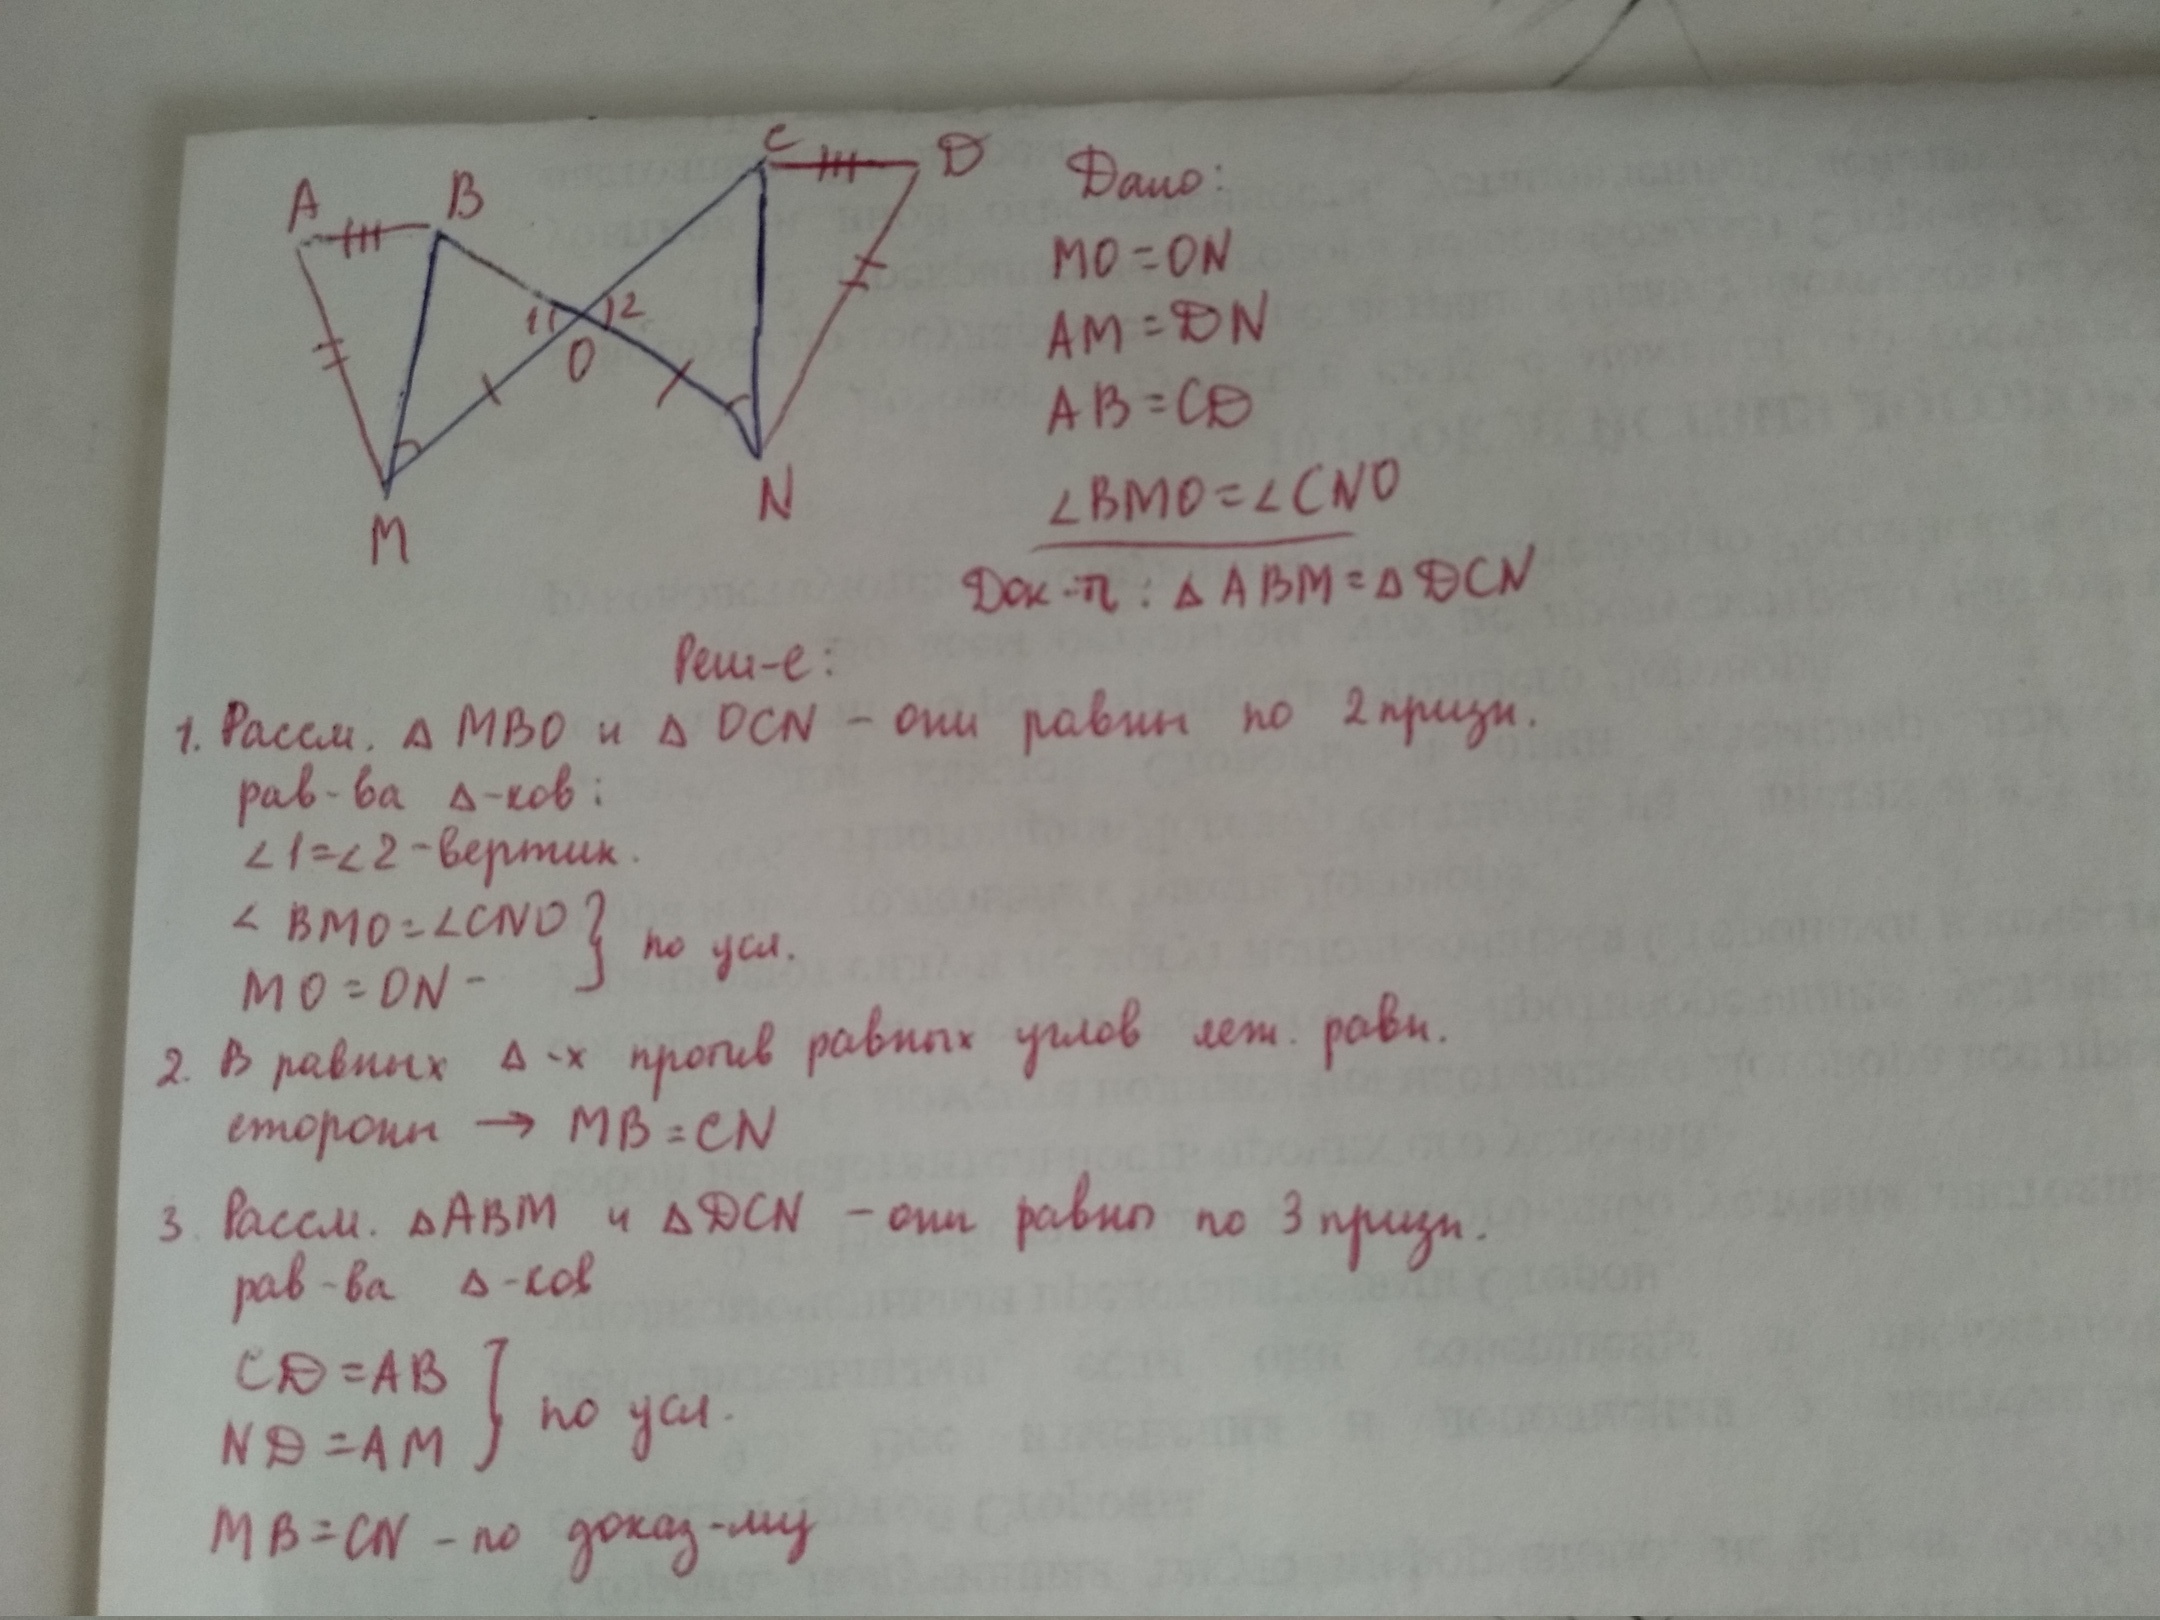 A B C D
1 2
O
M N
Дано:
MO=ON
AM=DN
AB=CD
∠BMO=∠CNO
Док-ть: △ABM=△DCN
Реш-е:
1. Рассм. △ MBO и △ OCN – они равны по 2 призн.
рав-ва △-ков:
∠1=∠2-вертик.
∠ BMO=∠CNO } по усл.
MO=ON -
2. В равных △-х против равных углов леж. равн.
стороны → MB=CN
3. Рассм. △ABM и △DCN – они равны по 3 призн.
рав-ва △-ков
CD=AB } по усл.
ND=AM
MB=CN – по доказ-му